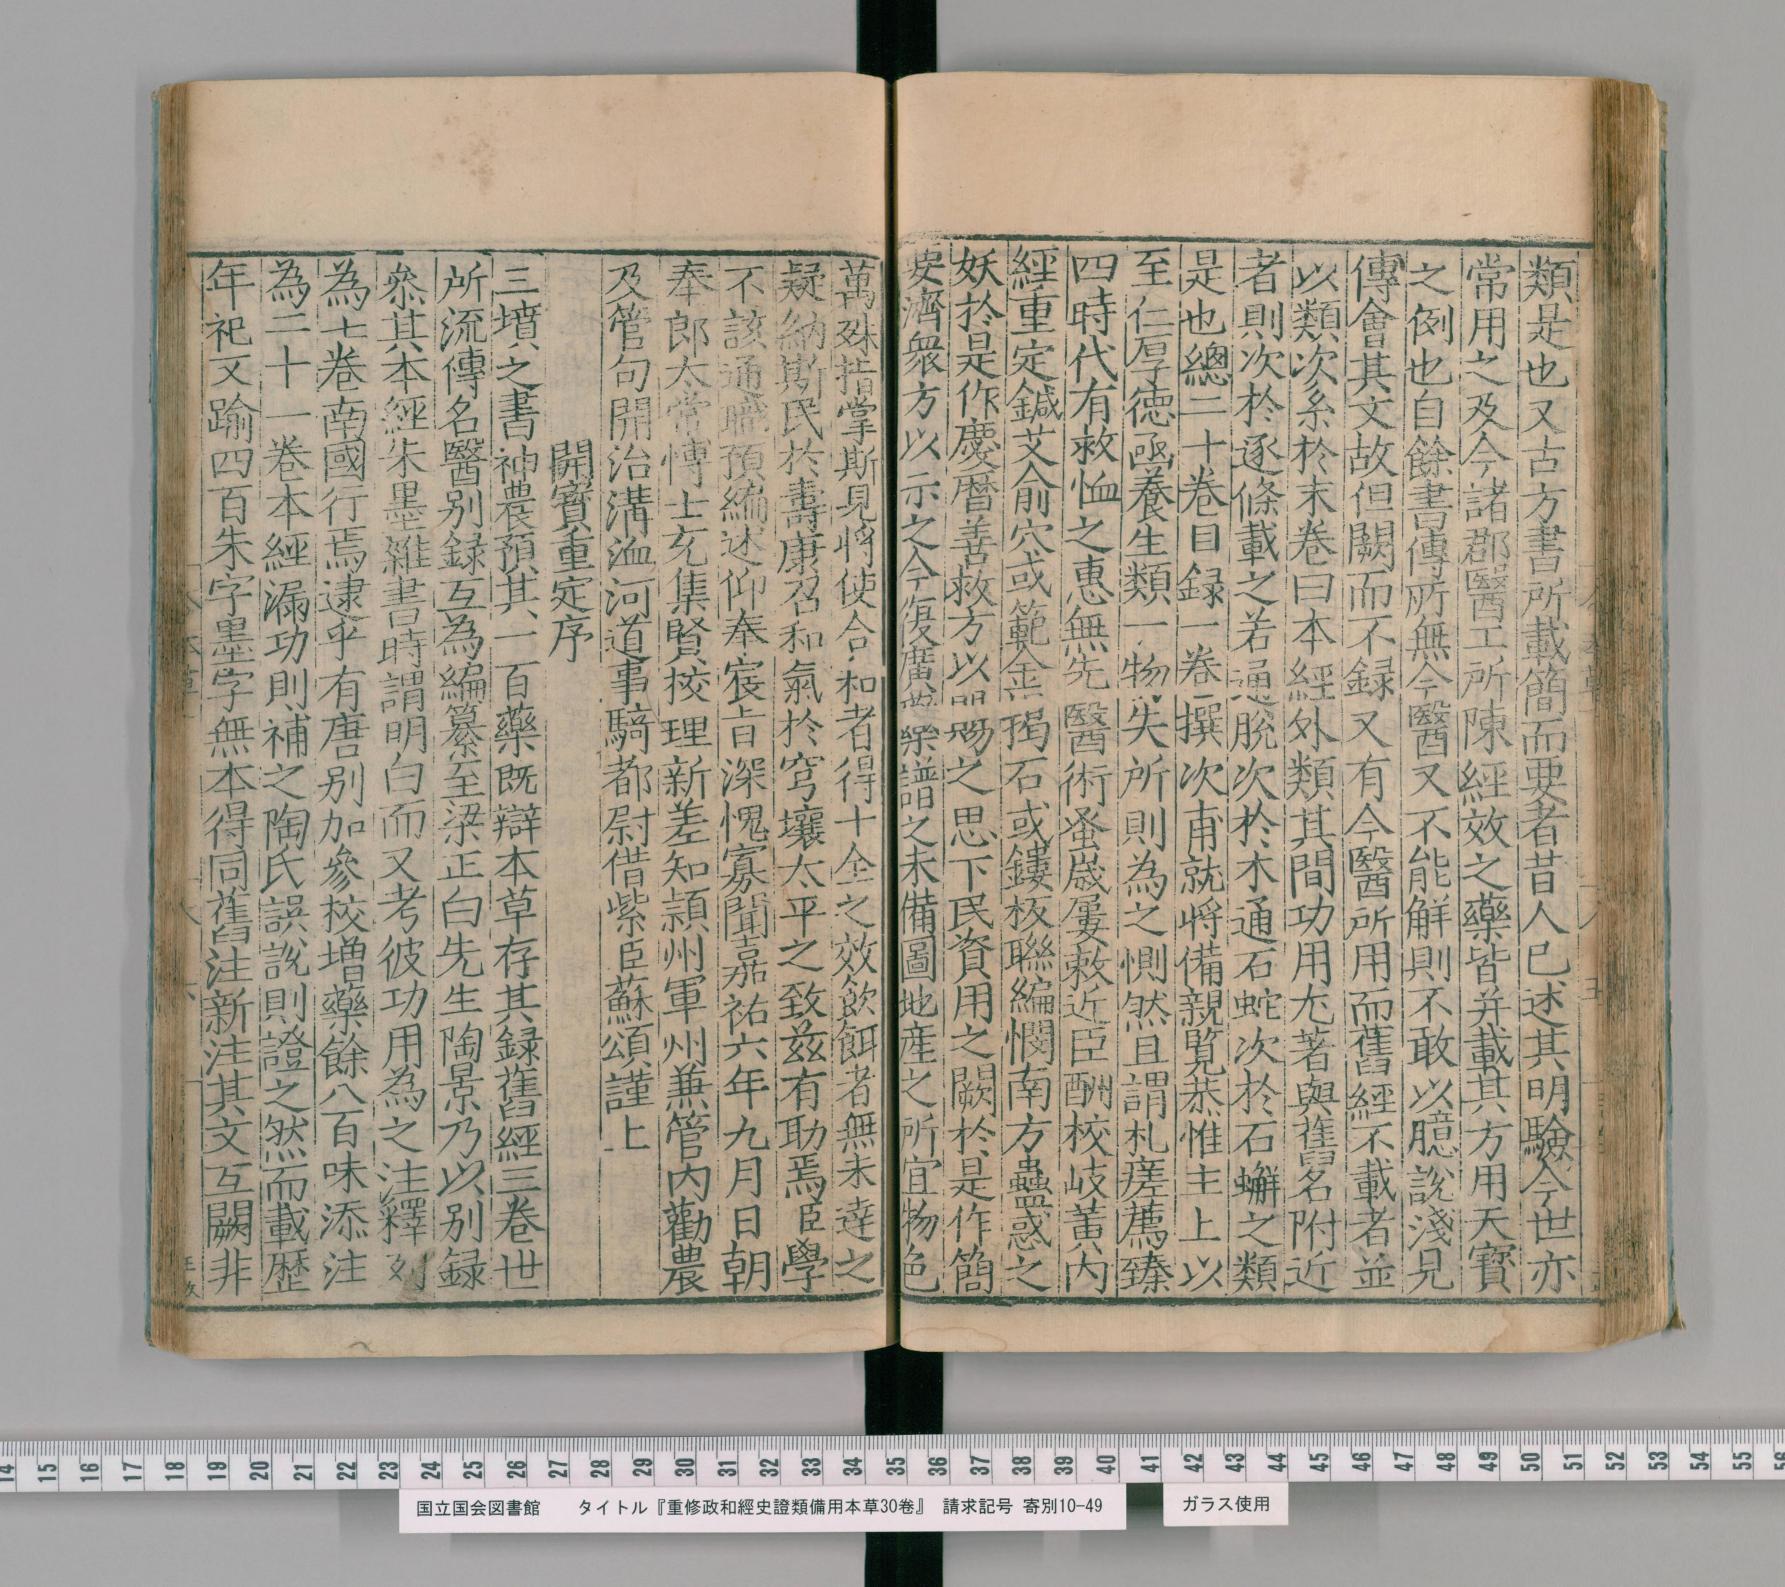 類是也又古方書所載簡而要者昔人已述其明驗今世亦
常用之及今諸郡醫工所陳經效之藥皆并載其方用天寶
之例也自餘書傳所無今醫又不能解則不敢以臆說淺見
傳會其文故但闕而不録又有今醫所用而舊經不載者並
以類次系於末卷曰本經外類其間功用尤著與舊名附近
者則次於逐條載之若通脫次於木通石蛇次於石蠏之類
是也總二十卷目録一卷撰次甫就將備親覧恭惟主上以
至仁厚德函養生類一物失所則為之惻然且謂札瘥薦臻
四時代有救恤之惠無先醫術蚤嵗屢敕近臣酬校岐黄内
經重定鍼艾俞穴或範金揭石或鏤板聯編憫南方蠱惑之
妖於是作慶暦善救方以賜之思下民資用之闕於是作簡
要濟衆方以示之今復廣藥譜之未備圖地産之所宜物色
萬殊指掌斯見將使合和者得十全之效飲餌者無未達之
疑納斯民於壽康召和氣於穹壤太平之致兹有助焉臣學
不該通職預編述仰奉宸旨深愧寡聞嘉祐六年九月日朝
奉郎太常博士充集賢挍理新差知潁州軍州兼管内勸農
及管句開治溝洫河道事騎都尉借紫臣蘇頌謹上
開寳重定序
三墳之書神農預其一百藥既辯本草存其録舊經三卷世
所流傳名醫别録互為編纂至梁正白先生陶景乃以别録
叅其本經朱墨雜書時謂明白而又考彼功用為之注釋列
為七卷南國行焉逮乎有唐别加參校増藥餘八百味添注
為二十一卷本經漏功則補之陶氏誤說則證之然而載歴
年祀又踰四百朱字墨字無本得同舊注新注其文互闕非
国立国会図書館 タイトル『重修政和經史證類備用本草30卷』 請求記号 寄別10-49
ガラス使用
14 15 16 17 18 19 20 21 22 23 24 25 26 27 28 29 30 31 32 33 34 35 36 37 38 39 40 41 42 43 44 45 46 47 48 49 50 51 52 53 54 55 56